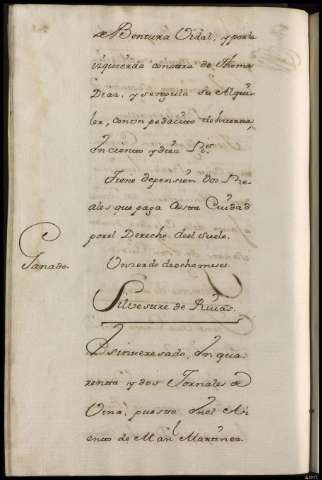 de Bentura Vidal, y por la
izquierda con otra de Thoma
Diaz, y se regula su Alqui
ler, con un pedacito de huerta,
En ciento y diez Rs.
Tiene de pension dos Rea
les que paga a esta Ciudad
por el Derecho del suelo.
Ganado.
Un zerdo de ocho meses.
Silvestre de Rivas.
Es interesado, En qua
renta y dos Jornales de
Viña, puestos En el
de Man.l Martinez.